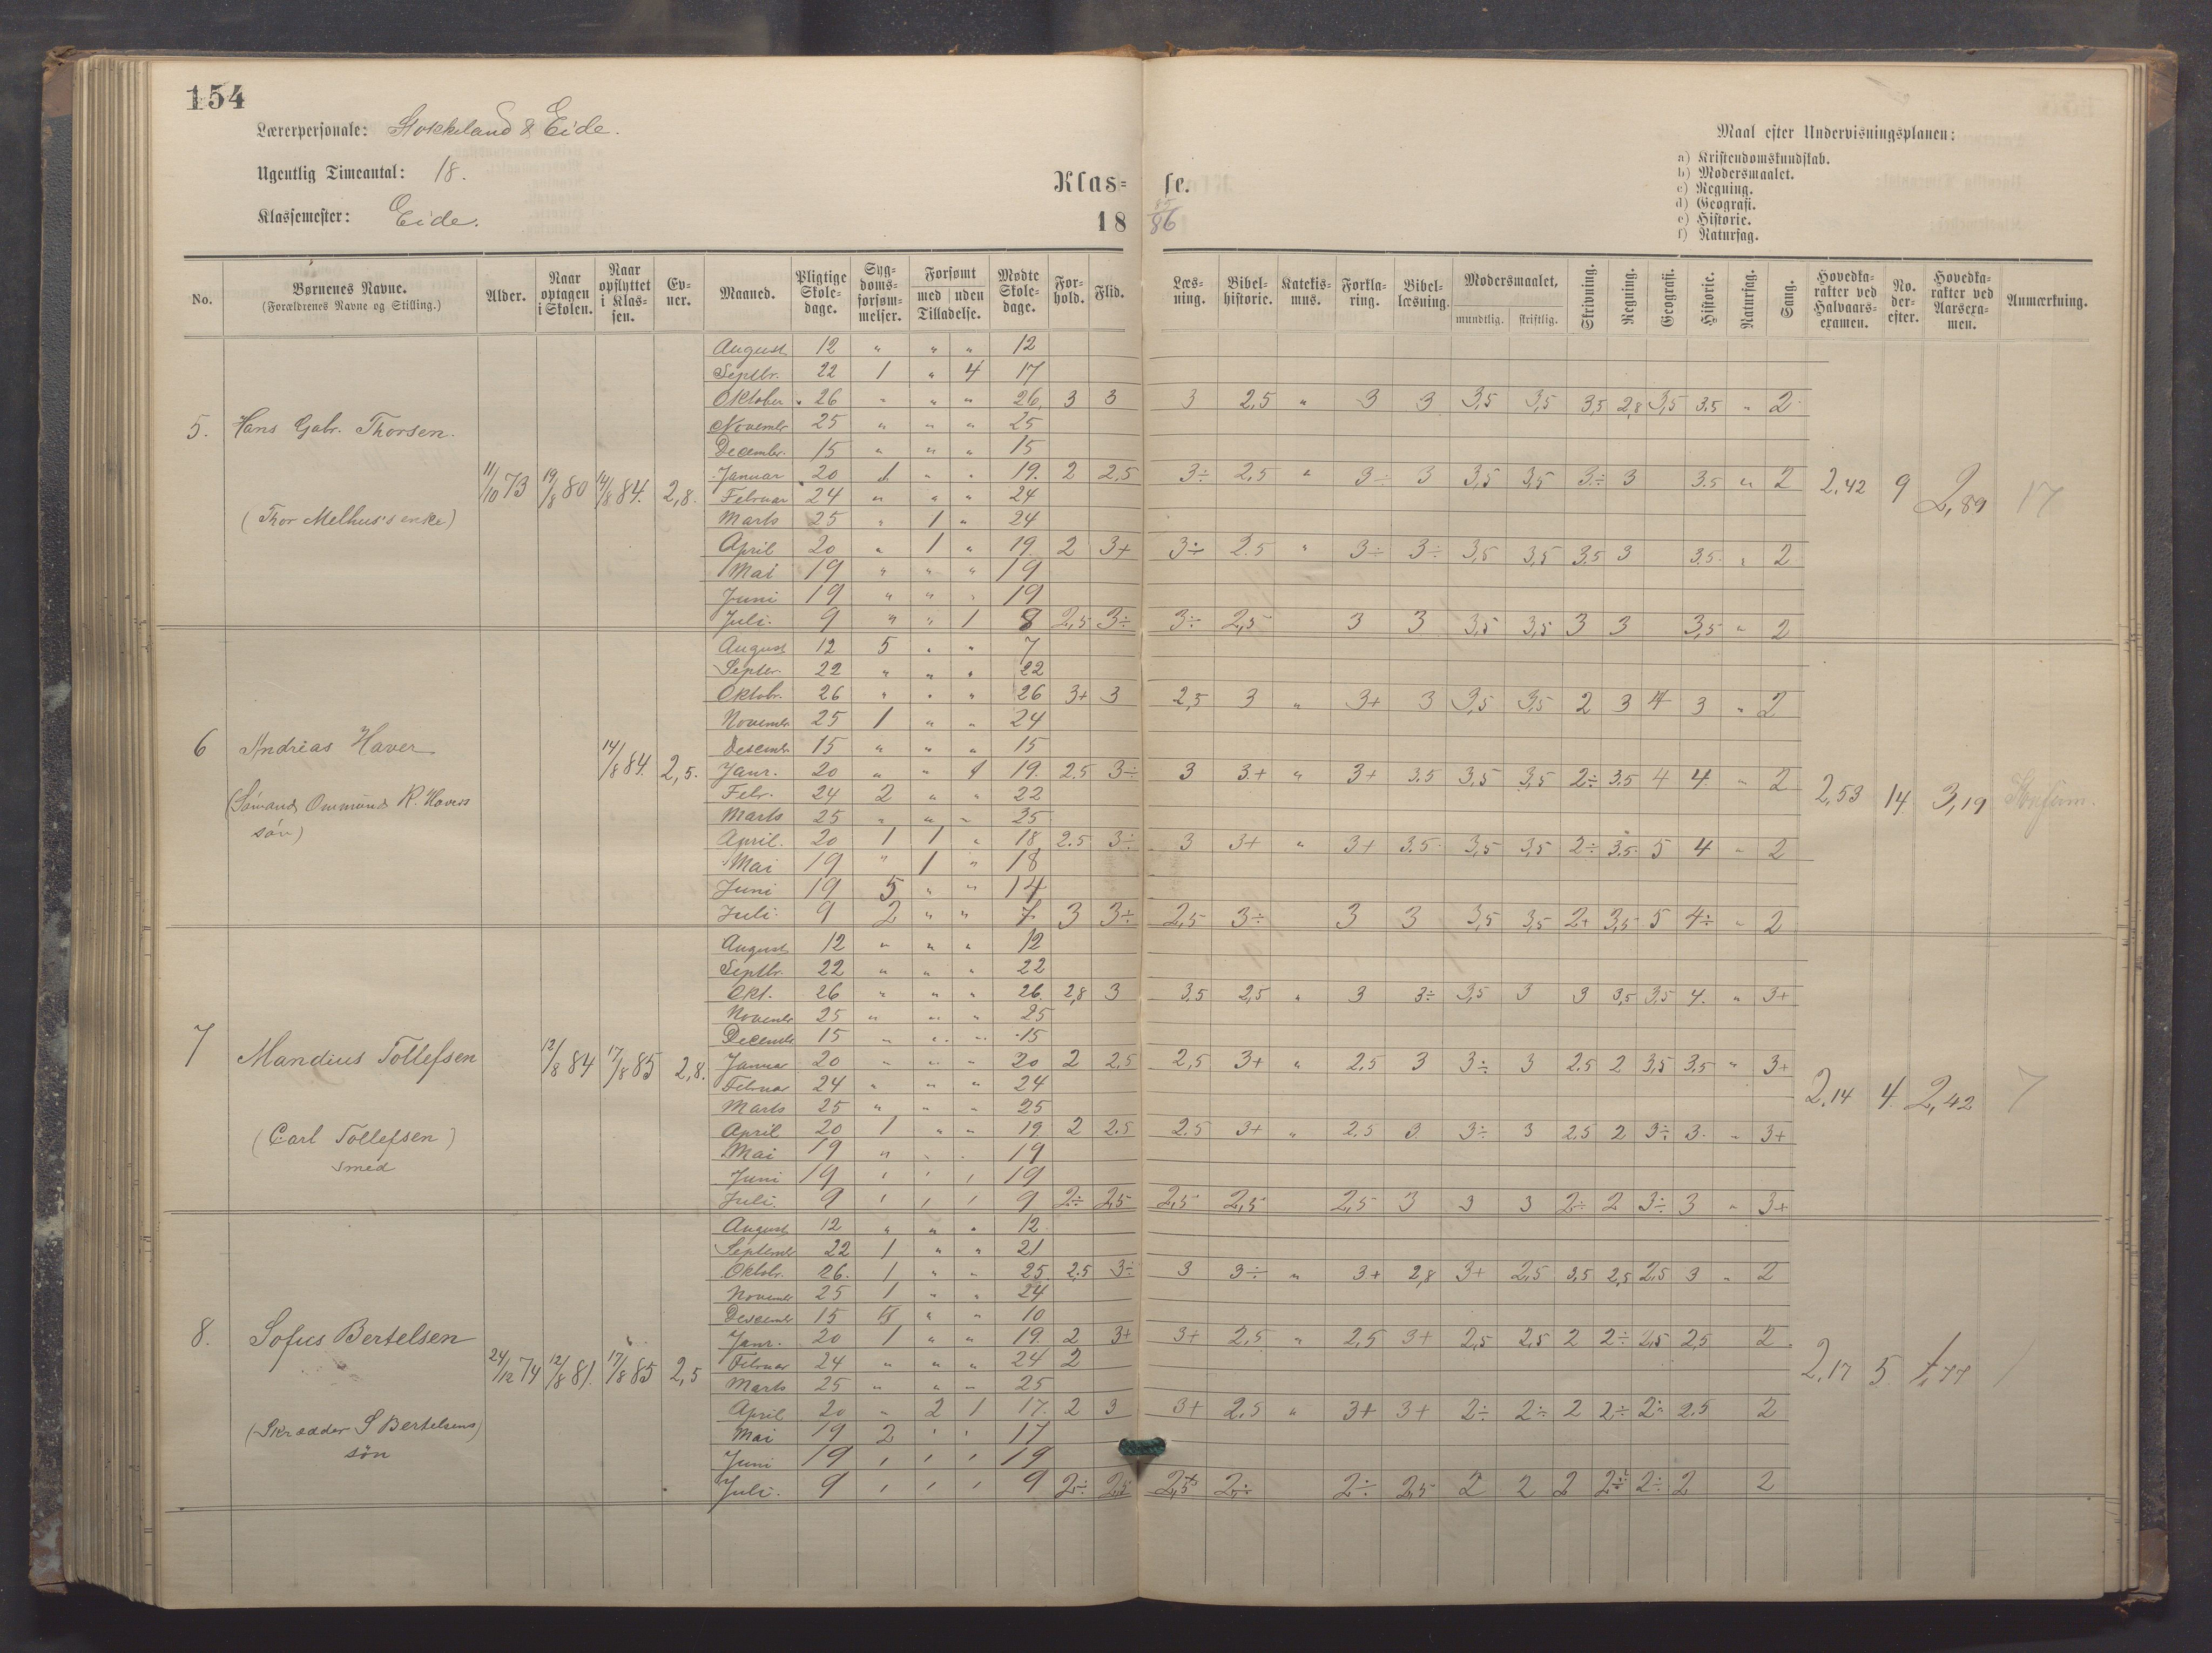 154
Lærerpersonale: Stokkeland & Eide.
Ugentlig Timeantal: 18.
Klassemester: Eide.
Klas= se.
18 85/86
Maal efter Undervisningsplanen:
a) Kristendomskundskab.
b) Modersmaalet.
c) Regning.
d) Geografi.
e) Historie.
f) Naturfag.
No. | Børnenes Navne. (Forældrenes Navne og Stilling.) | Alder. | Naar optagen i Skolen. | Naar opflyttet i Klas=sen. | Ev=ner. | Maaned. | Pligtige Skole=dage. | Syg=doms=forsøm=melser. | Forsømt med uden Tilladelse. | Mødte Skole=dage. | For=hold. | Flid. | Læs=ning. | Bibel=historie. | Katekis=mus. | Forkla=ring. | Bibel=læsning. | Modersmaalet, mundtlig. skriftlig. | Skrivning. | Regning. | Geografi. | Historie. | Naturfag. | Sang. | Hovedka=rakter ved Halvaars=examen. | No. der=efter. | Hovedka=rakter ved Aarsexa=men. | Anmærkning.
5. Hans Gabr. Thorsen.
(Thor Melhus's enke)
11/10 73 19/8 80 14/8 84. 2,8.
August 12 " " " 12
Septbr. 22 1 " 4 17
Oktober 26 " " " 26 3 3 3 2,5 " 3 3 3,5 3,5 3,5 2,8 3,5 3.5 " 2
Novembr 25 " " " 25
Decembr. 15 " " " 15
Januar 20 1 " " 19. 2 2,5 3÷ 2,5 " 3÷ 3 3,5 3,5 3÷ 3 3.5 " 2
Februar 24 " " " 24
Marts 25 " 1 " 24
April 20 " 1 " 19. 2 3+ 3÷ 2.5 " 3÷ 3÷ 3,5 3,5 3.5 3 3.5 " 2
Mai 19 " " " 19
Juni 19 " " " 19
Juli. 9 " " 1 8 2,5 3÷ 3÷ 2,5 3 3 3,5 3,5 3 3 3,5 " 2
2,42 9 2,89 17
6 Andrias Haver
(Sømand Ommund R. Havers søn)
14/8 84. 2,5.
August 12 5 " " 7
Septbr. 22 " " " 22
Oktobr. 26 " " " 26 3+ 3 2,5 3 " 3+ 3 3,5 3,5 2 3 4 3 " 2
Novembr 25 1 " " 24
Desembr 15 " " " 15
Janr. 20 " " 1 19. 2.5 3÷ 3 3+ " 3+ 3.5 3,5 3,5 2÷ 3.5 4 4. " 2
Febr. 24 2 " " 22
Marts 25 " " " 25
April. 20 1 1 " 18 2.5 3÷ 3 3+ " 3+ 3.5 3,5 3,5 2÷ 3.5 5 4 " 2
Mai 19 " 1 " 18
Juni 19 5 " " 14
Juli. 9 2 " " 7 3 3÷ 2,5 3÷ 3 3 3,5 3,5 2+ 3,5 5 4÷ " 2
2,53 14. 3,19
7 Mandius Tollefsen
(Carl Tollefsen) smed
12/8 84 17/8 85 2,8.
August 12 " " " 12
Septbr. 22 " " " 22
Okt. 26 " " " 26. 2,8 3 3.5 2,5 " 3 3÷ 3,5 3 3 3,5 3,5 4. " 3+
Novembr 25 " " " 25
Decembr. 15 " " " 15
Januar 20 " " " 20 2 2,5 2,5 3+ " 2,5 3 3÷ 3 2.5 2 3,5 3.5 " 3+
Februar 24 " " " 24
Marts 25 " " " 25
April 20 1 " " 19 2 2.5 2.5 3+ " 2,5 3 3÷ 3 2.5 2 3÷ 3. " 3+
Mai 19 " " " 19
Juni 19 ' ' ' 19
Juli. 9 ' ' ' 9 2÷ 2,5 2,5 2,5 2,5 3 3 3 2÷ 2 3÷ 3 " 3+
2,14 4. 2,42 7
8. Sofus Bertelsen
(Skrædder S Bertelsens) søn
24/12 74 12/8 81. 17/8 85 2,5
August 12 " " " 12
Septembr 22 1 " " 21
Oktobr. 26. 1 " " 25. 2,5 3÷ 3 3÷ " 3+ 2,8 3+ 2,5 3,5 2,5 2,5 3 " 2
Novembr 25 1 " " 24
Desembr 15 5 " " 10
Janr. 20 1 " " 19. 2 3+ 3+ 2,5 " 2,5 3+ 2,5 2,5 2 2÷ 2,5 2,5 2
Februar 24 " " " 24 2
Marts 25 " " " 25
April 20 " 2 1 17. 2 3 3+ 2,5 " 3+ 3+ 2÷ 2÷ 2 2÷ 2÷ 2.5 2
Mai 19 2 ' ' 17
Juni 19 ' ' ' 19
Juli. 9 ' ' ' 9 2÷ 2,5 2,5 2÷ 2÷ 2,5 2 2 2 2÷ 2÷ 2 2
2,17 5 1,77 1